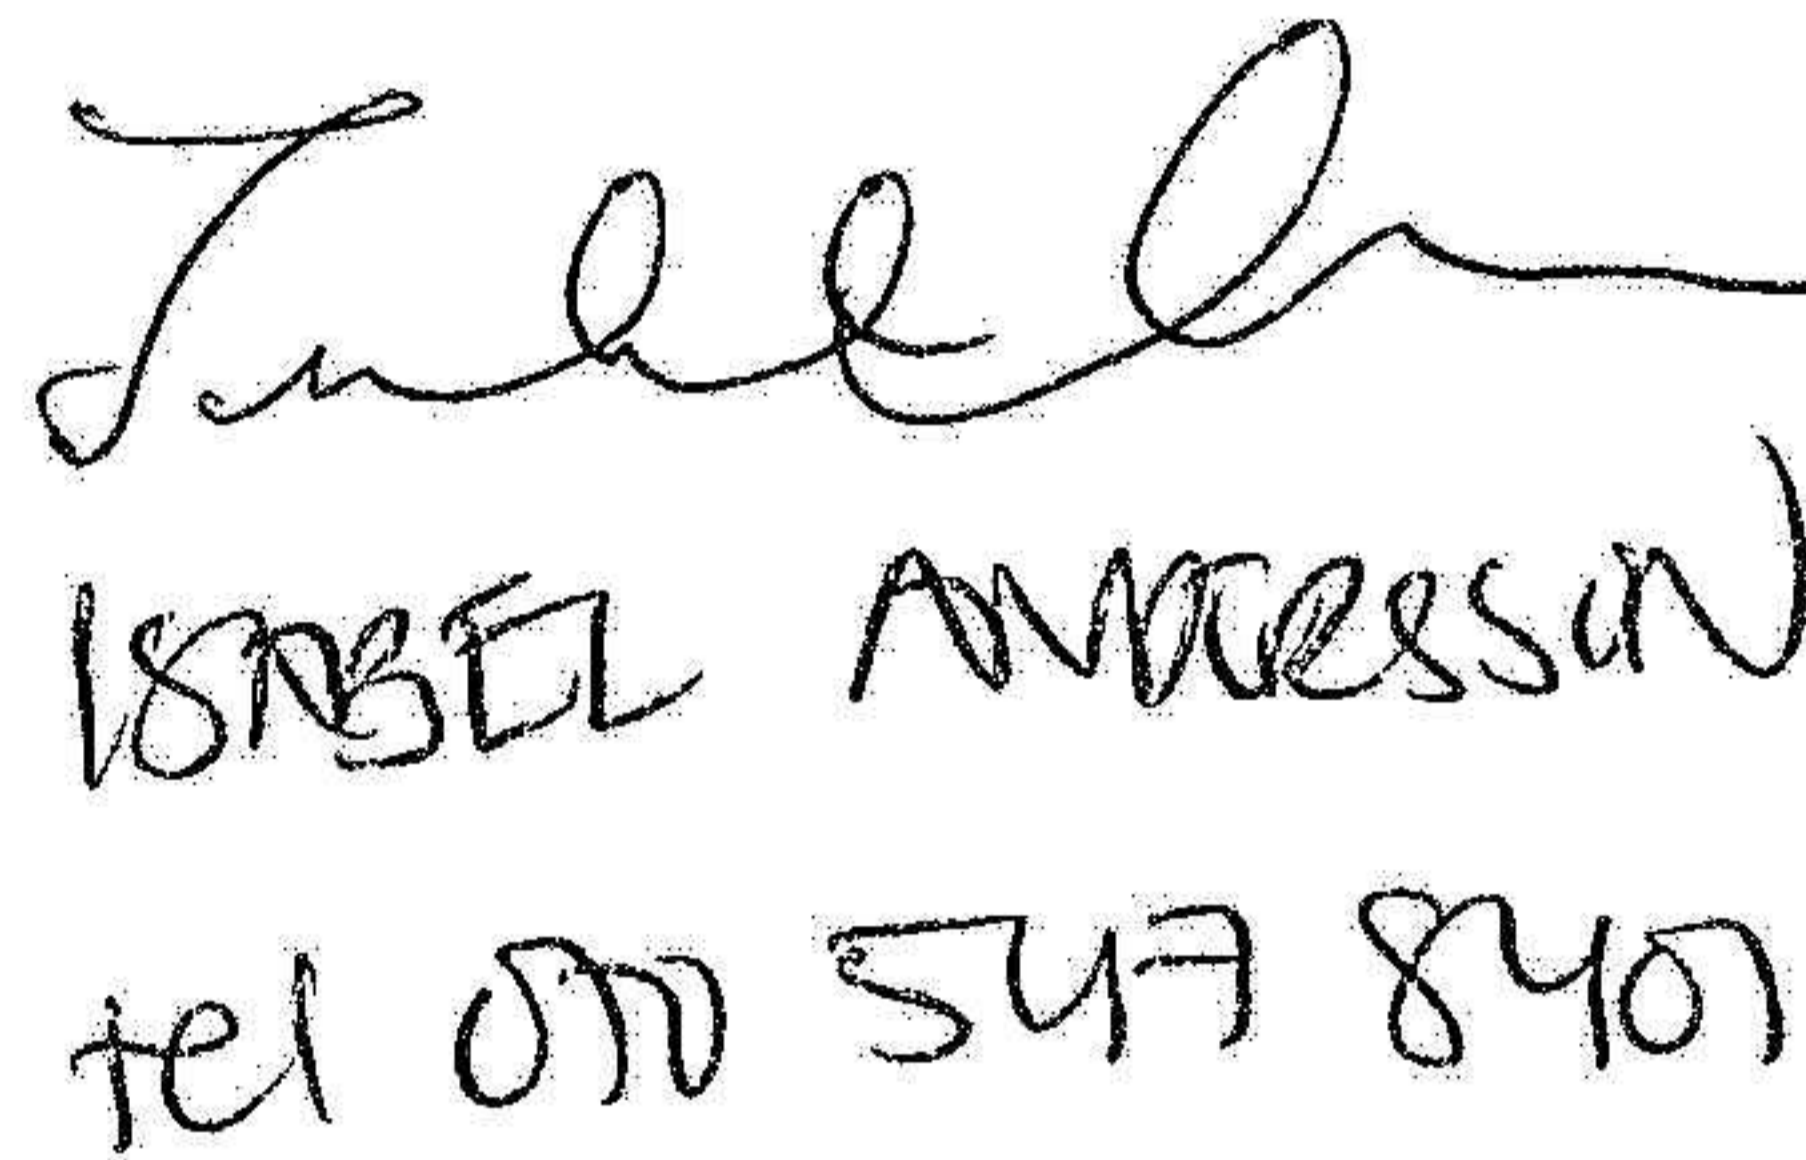 ISABEL ANDERSSON
tel 070 547 8407